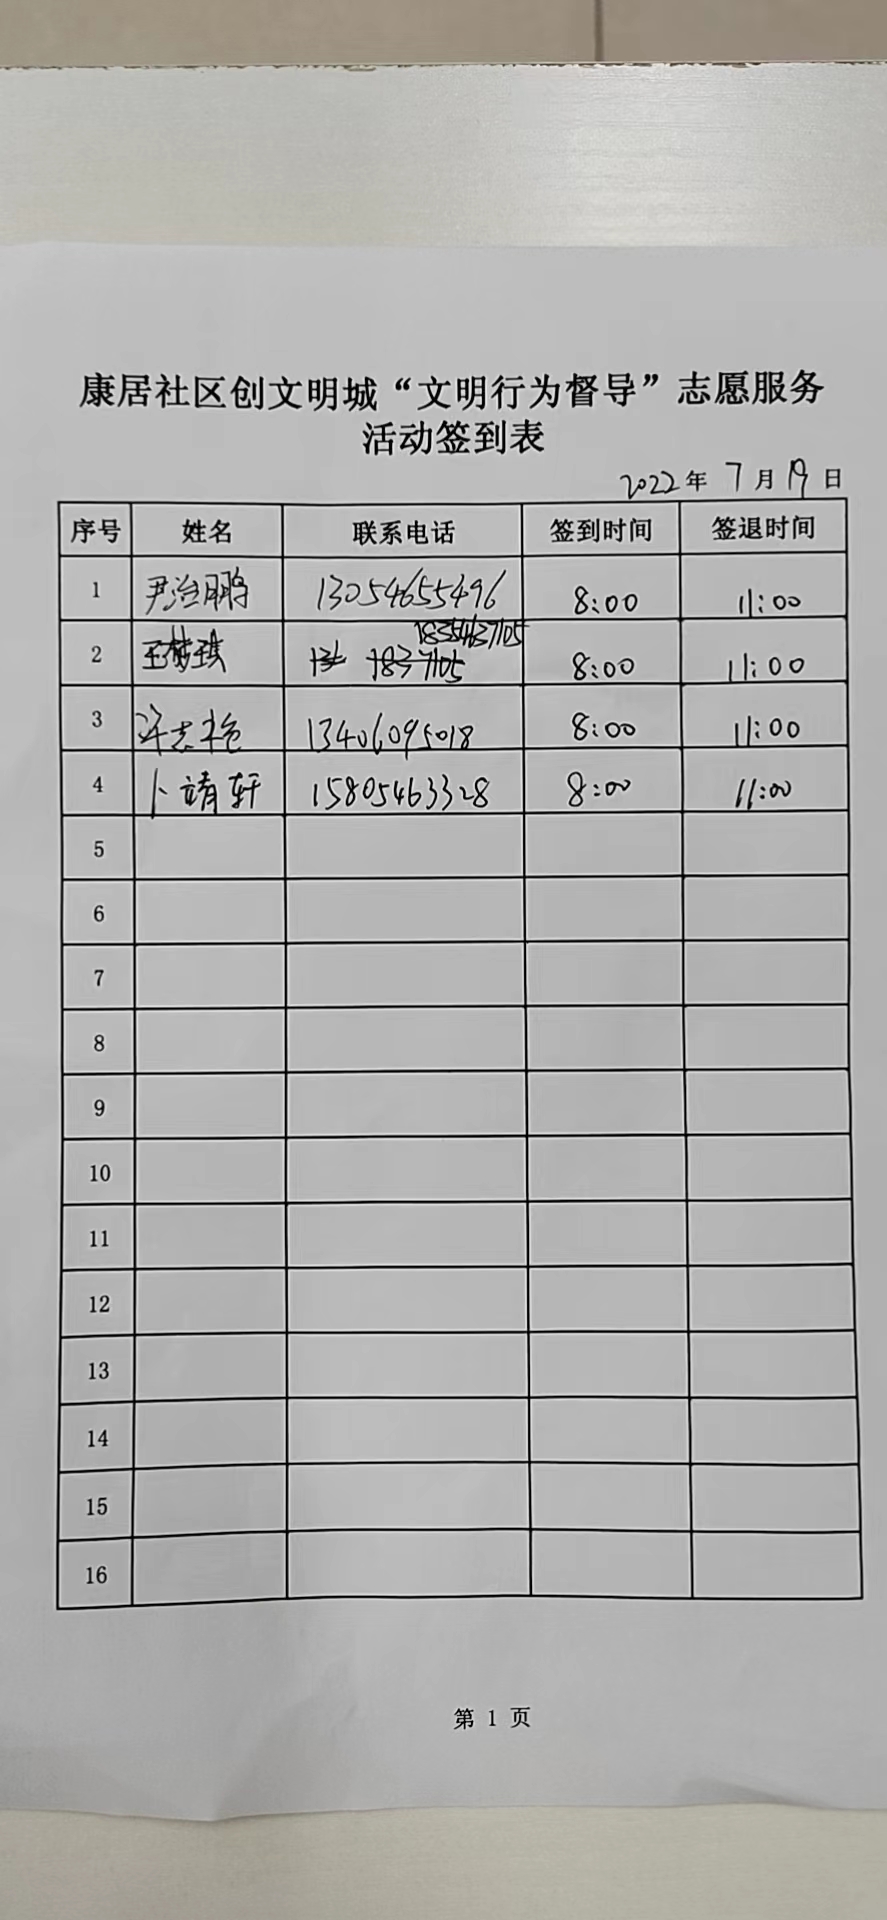 康居社区创文明城“文明行为督导”志愿服务
活动签到表
2022年 7月19日
序号 姓名 联系电话 签到时间 签退时间
1 尹治鹏 13054655496 8:00 11:00
2 王梦琪 18354637105 8:00 11:00
3 许志艳 13406095018 8:00 11:00
4 卜靖轩 15805463328 8:00 11:00
5
6
7
8
9
10
11
12
13
14
15
16
第 1 页